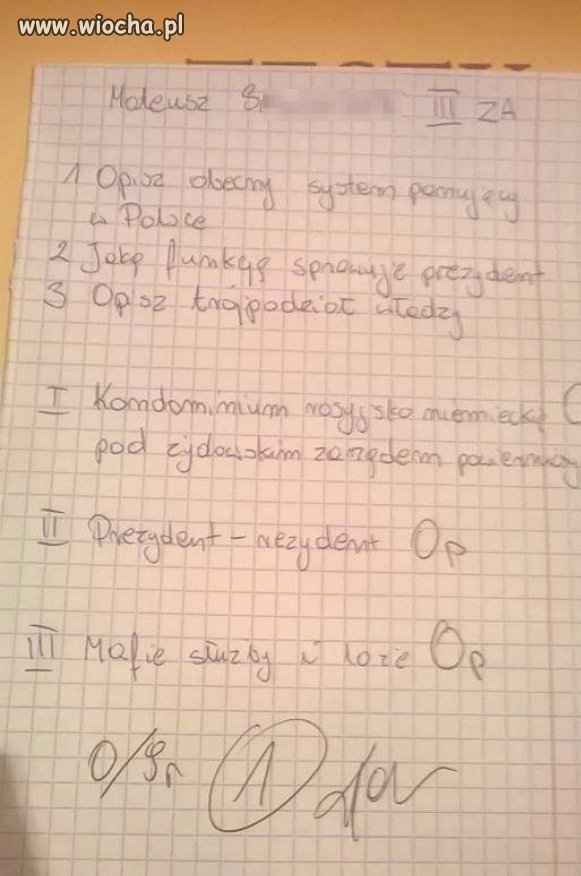 www.wiocha.pl
Mateusz S III ZA
1 Opisz obecny system panujący
w Polsce
2 Jaką funkcję sprawuje prezydent
3 Opisz trójpodział władzy
I Kondominium rosyjsko niemieckie
pod żydowskim zarządem powierniczy
II Prezydent - rezydent 0p
III Mafie służby i loże 0p
0/9p 1